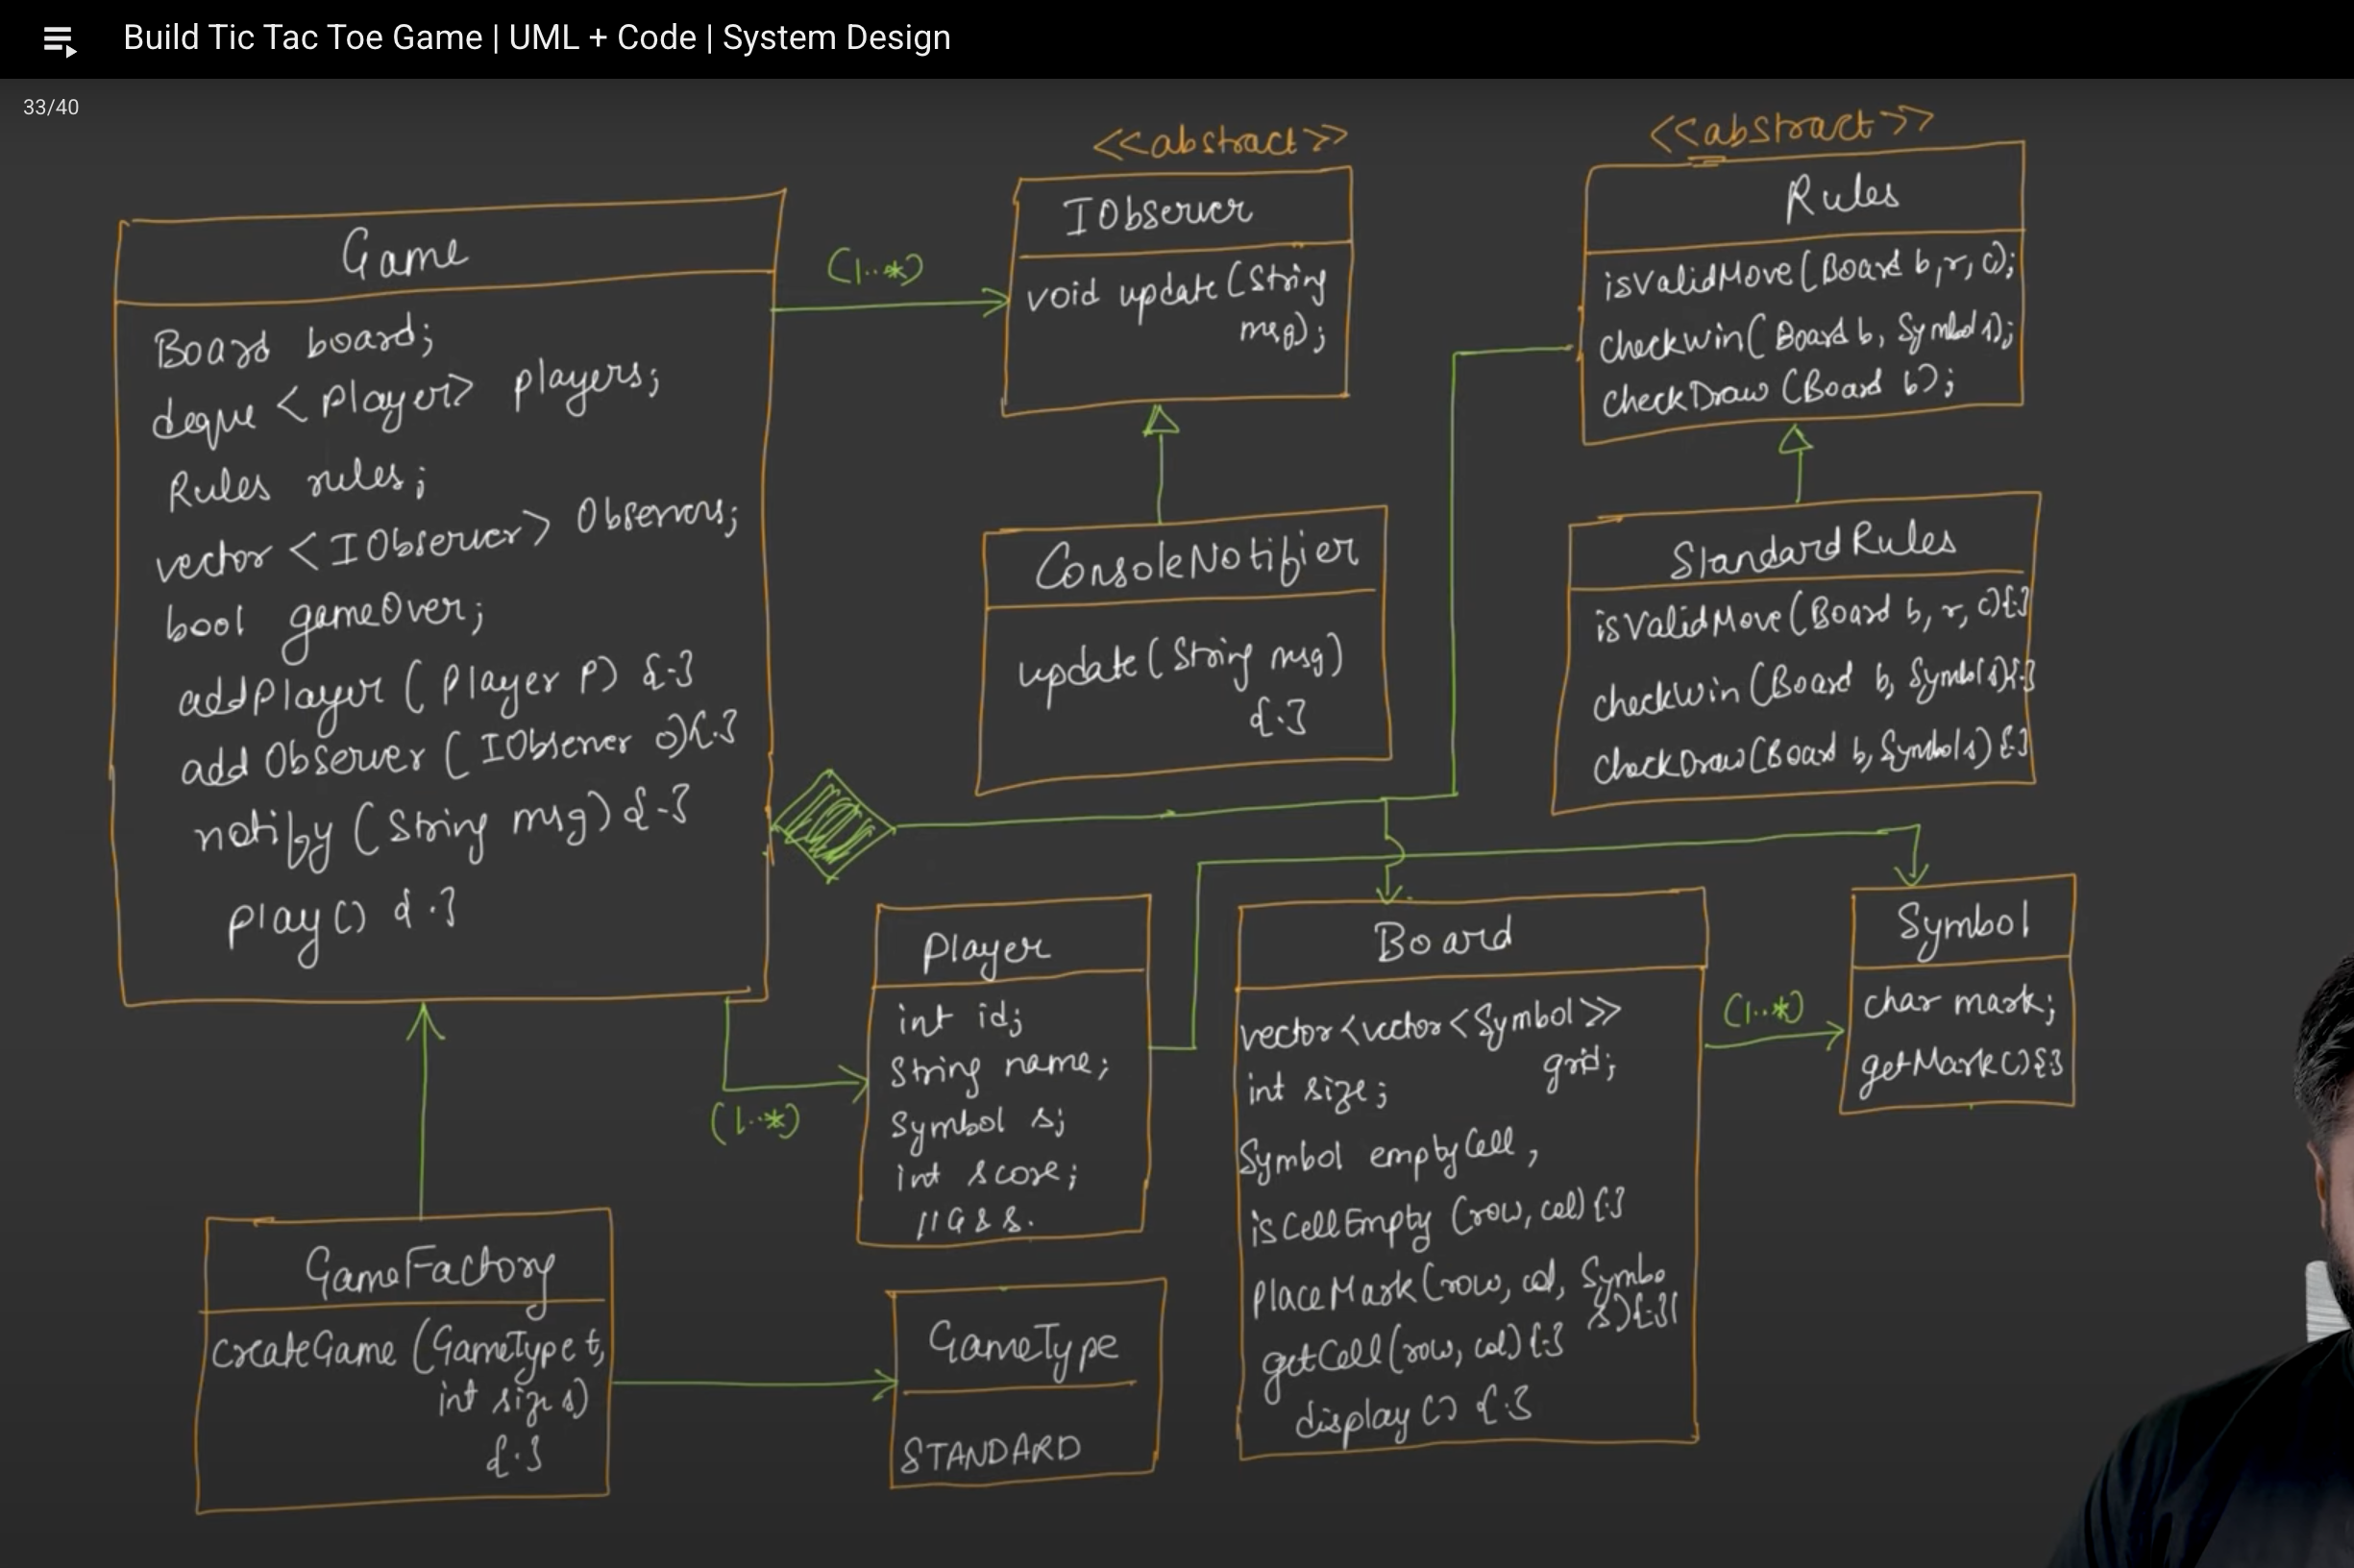 Build Tic Tac Toe Game | UML + Code | System Design
33/40
Game
Board board;
deque <Player> players;
Rules rules;
vector <IObserver> Observers;
bool gameOver;
addPlayer (Player P) {-}
add Observer (IObserver o){.}
notify (String msg) {-}
play() {.}
(1..*)
<<abstract>>
IObserver
void update (String
msg);
<<abstract>>
Rules
isValidMove(Board b, r, c);
checkwin( Board b, Symbol s);
checkDraw (Board b);
ConsoleNotifier
update (String msg)
{.}
StandardRules
isValidMove (Board b, r, c){.}
checkWin (Board b, Symbol s){.}
checkDraw(Board b, Symbol s) {.}
(1..*)
Player
int id;
String name;
Symbol s;
int score;
//G & S.
Board
vector<vector<Symbol>>
grid;
int size;
Symbol emptyCell,
isCellEmpty (row, col) {.}
placeMark(row, col, Symbo
s){.}
getCell(row, col) {.}
display () {.}
(1..*)
Symbol
char mark;
getMark(){}
GameFactory
createGame (GameType t,
int size s)
{.}
GameType
STANDARD